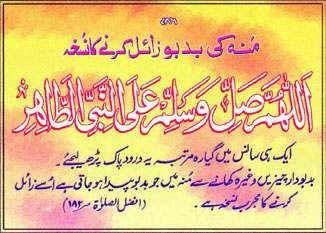 ۷۸۶
مُنہ کی بدبو زائل کرنے کا نسخہ
اَللّٰهُمَّ صَلِّ وَسَلِّمْ عَلَى النَّبِيِّ الطَّاهِرِ
ایک ہی سانس میں گیارہ مرتبہ یہ درود پاک پڑھ لیجئے۔
بدبودار چیزیں وغیرہ کھانے سے مُنہ میں جو بدبو پیدا ہو جاتی ہے اُسے زائل
کرنے کا مجرب نسخہ ہے۔ (افضل الصلوٰۃ ص۱۸۲)